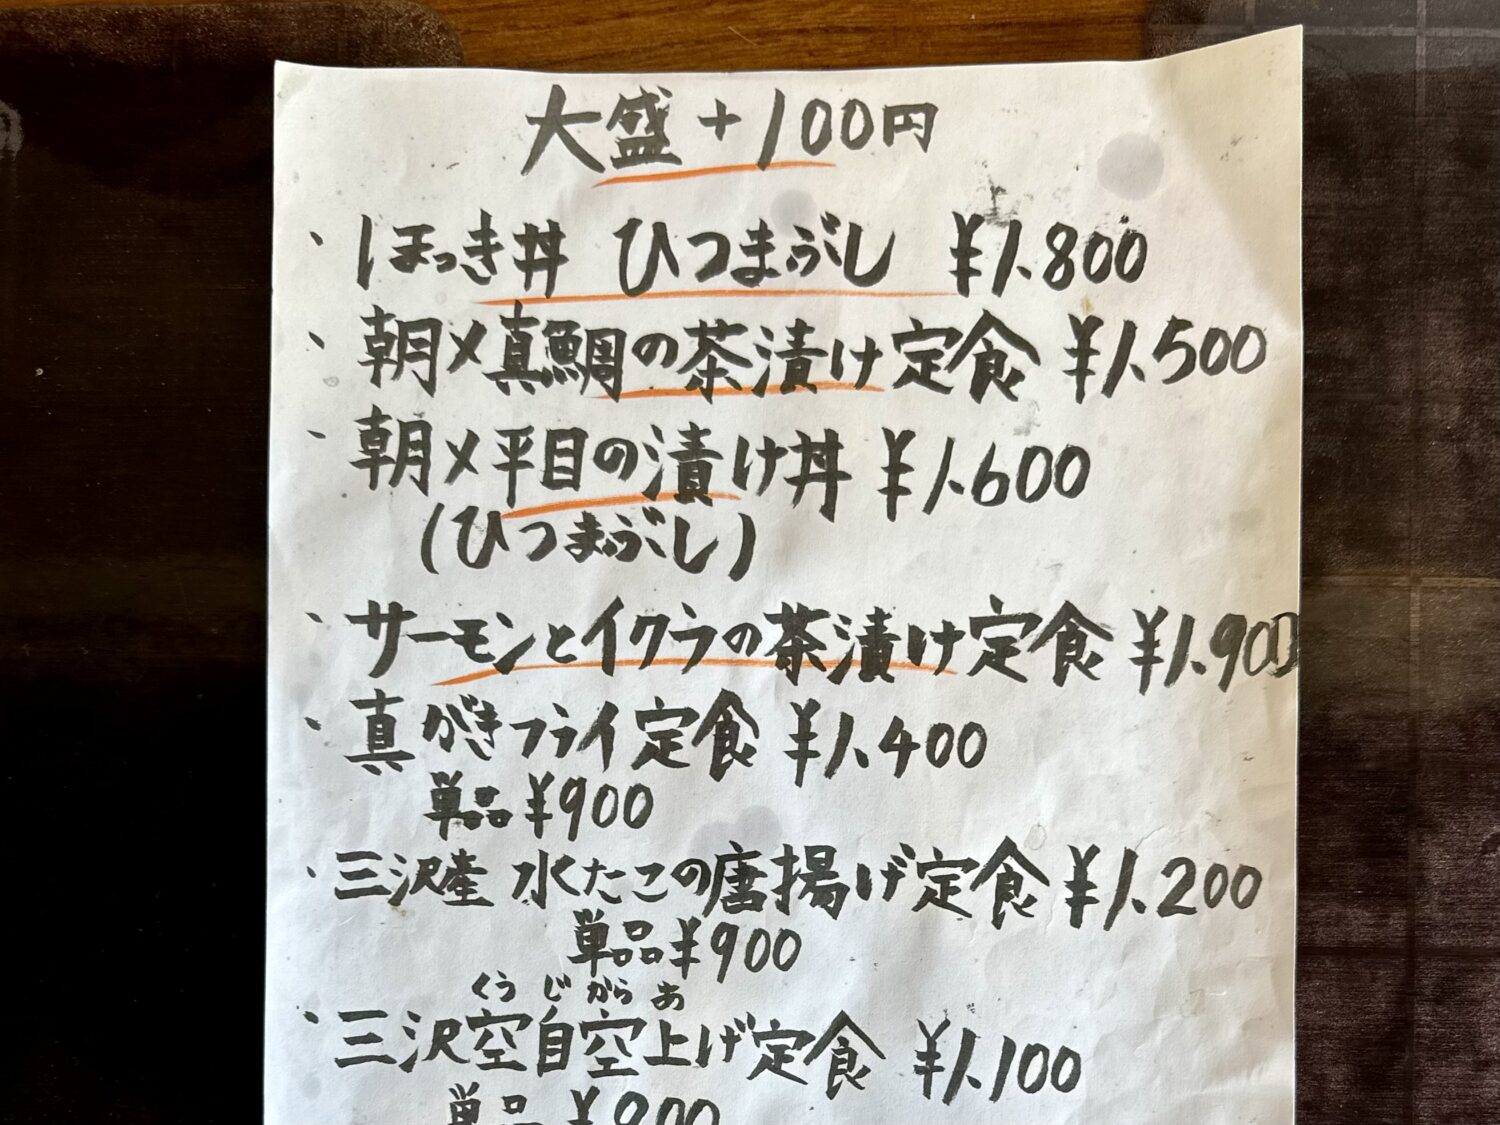 大盛+100円
、ほっき丼 ひつまぶし ¥1.800
、朝〆真鯛の茶漬け定食 ¥1.500
、朝〆平目の漬け丼 ¥1.600
(ひつまぶし)
、サーモンとイクラの茶漬け定食 ¥1.900
、真がきフライ定食 ¥1.400
単品¥900
、三沢産 水たこの唐揚げ定食 ¥1.200
単品¥900
くう じ から あ
、三沢空自空上げ定食 ¥1.100
単品 ¥